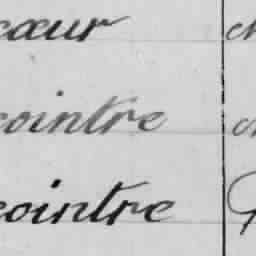 cœur
cointre
cointre